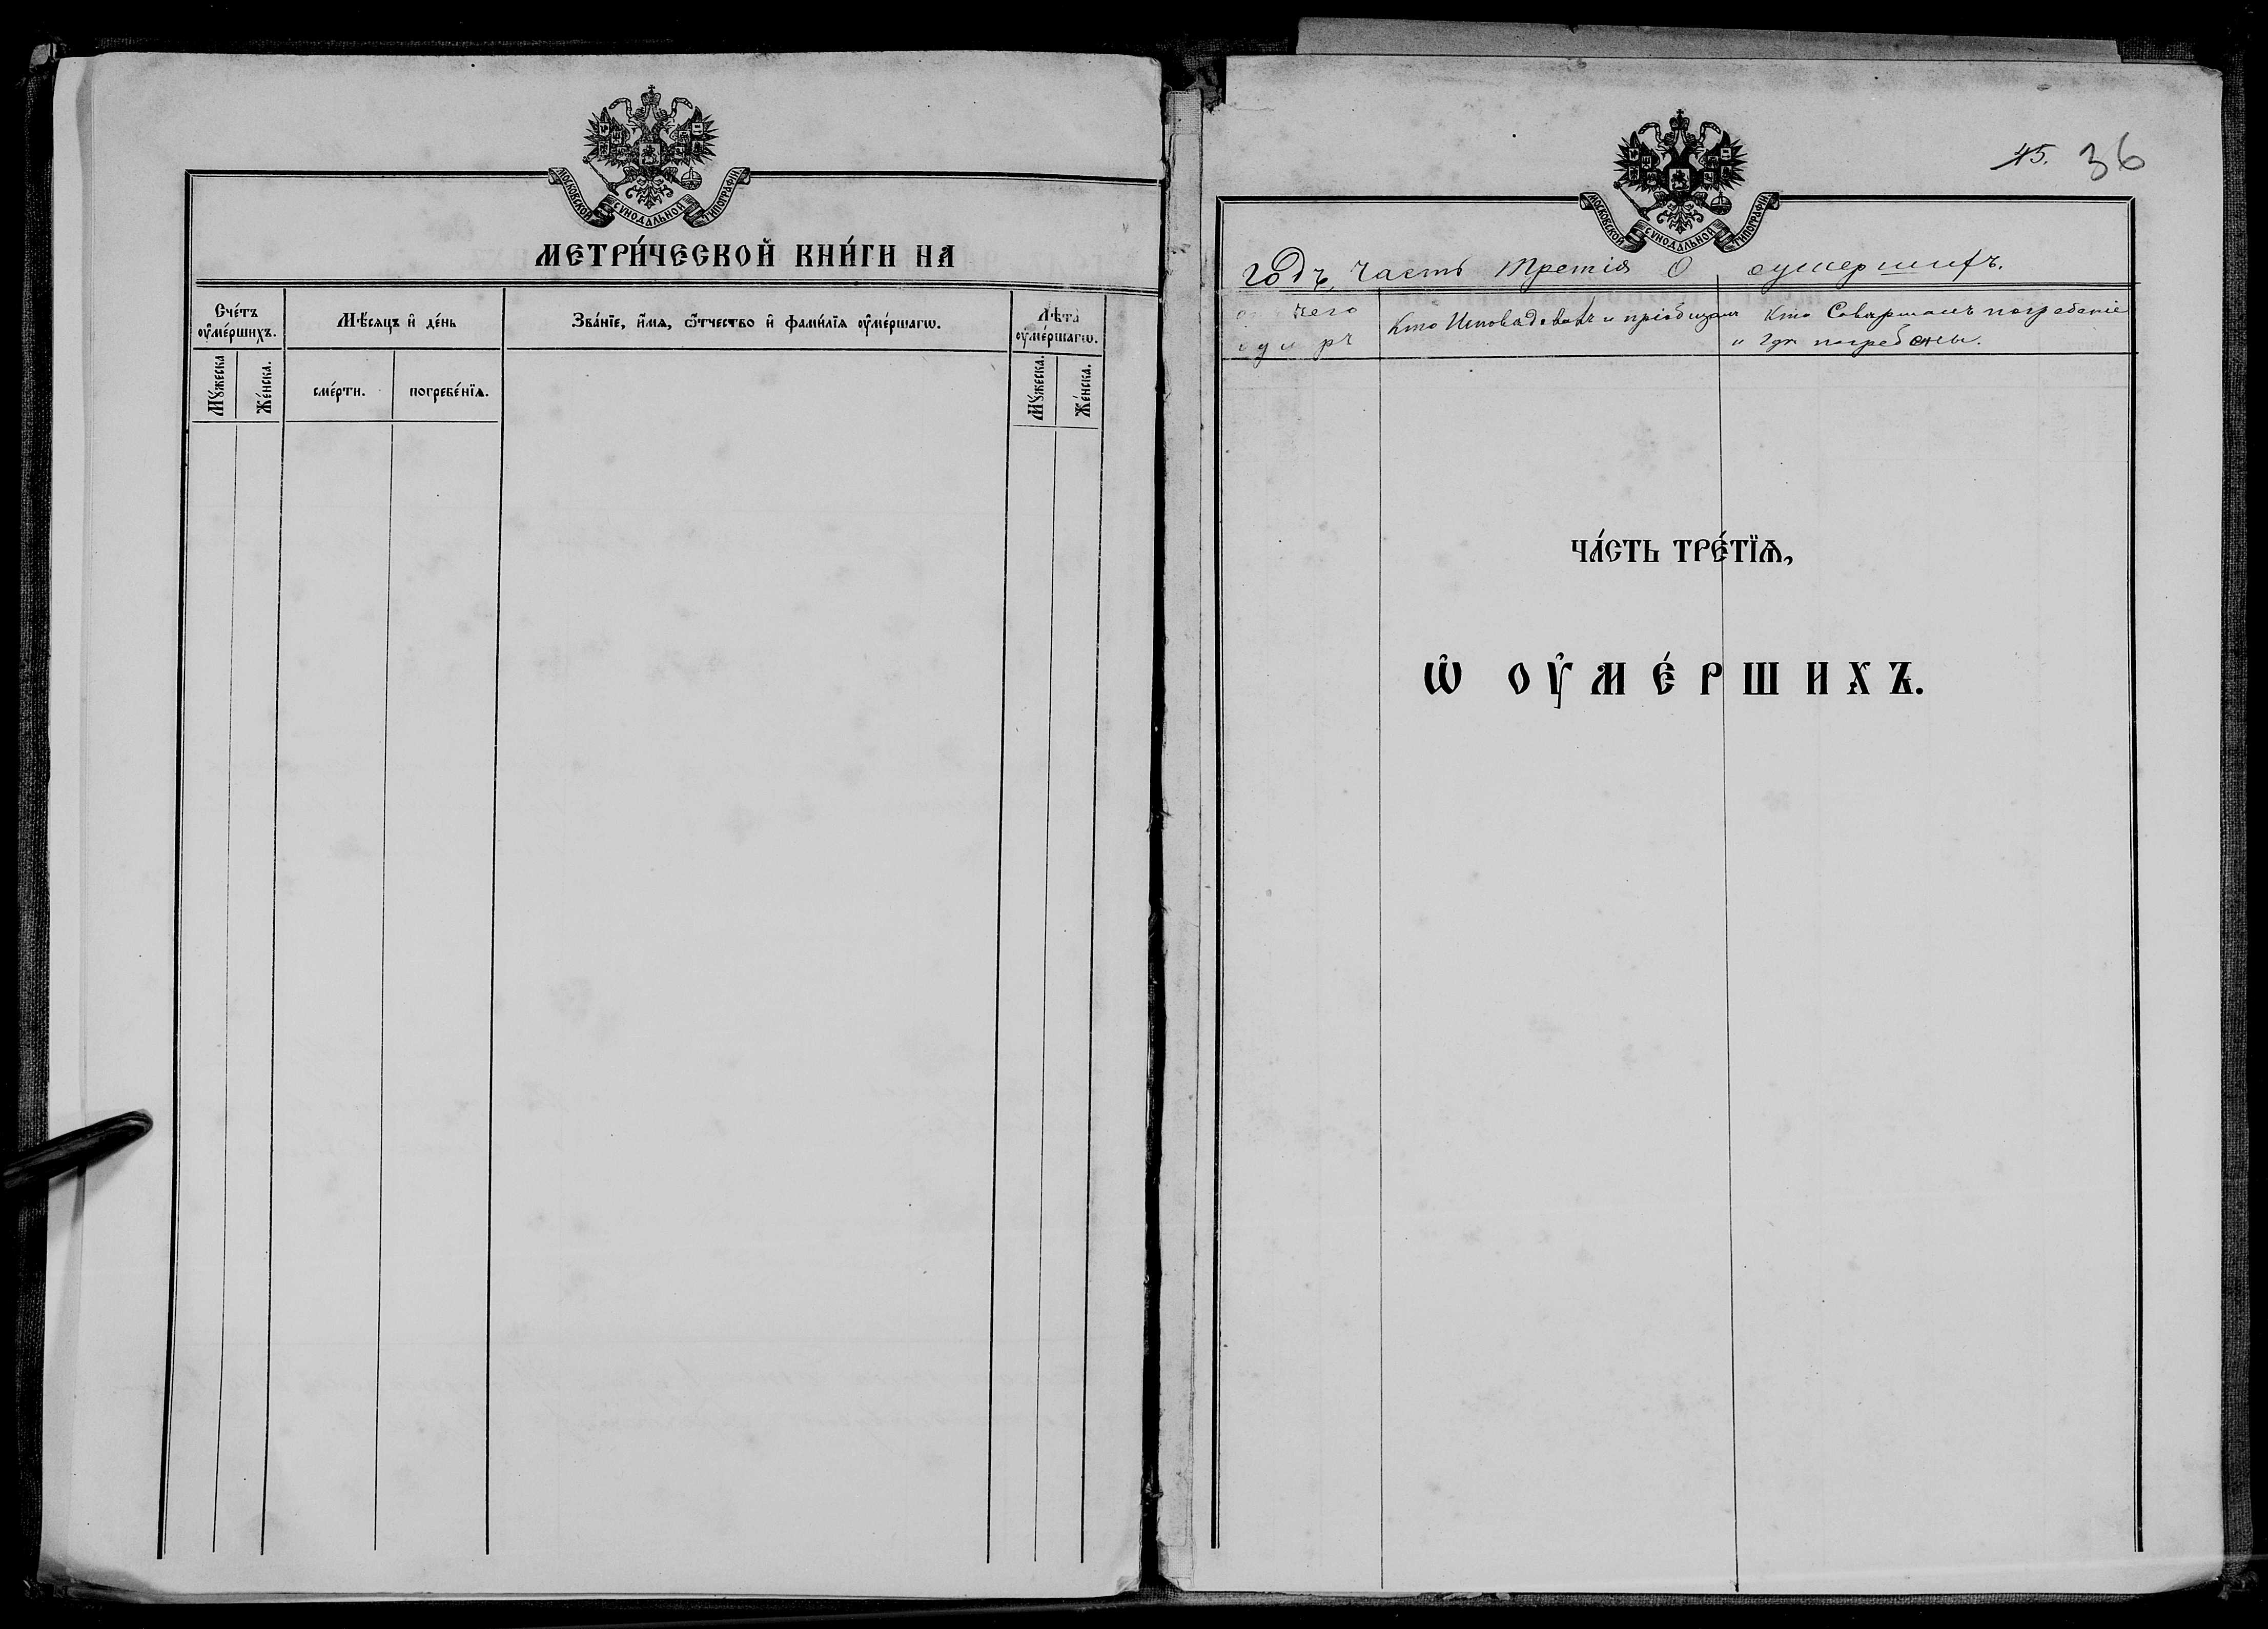 МОСКОВСКОЙ СУНОДАЛЬНОЙ ТИПОГРАФІИ
МЕТРИ́ЧЕСКОЙ КНИ́ГИ НА
Сче́тъ ᲂу҆ме́ршихъ.
Мѣ́сяцъ и҆ де́нь
Зва́нїе, и҆́мѧ, ѻ҆́тчество и҆ фами́лїѧ ᲂу҆ме́ршагѡ.
Лѣ́та ᲂу҆ме́ршагѡ.
Мꙋ́жеска
Же́нска.
сме́рти.
погребе́нїѧ.
Мꙋ́жеска.
Же́нска.
45. 36
МОСКОВСКОЙ СУНОДАЛЬНОЙ ТИПОГРАФІИ
годъ, Часть третія О оумершихъ.
чего
Кто Исповѣдовалъ и пріобщалъ
Кто Совершалъ погребеніе
и гдѣ погребены.
ЧА́СТЬ ТРЕ́ТЇѦ,
Ѡ҆ ОУ҆МЕ́РШИХЪ.